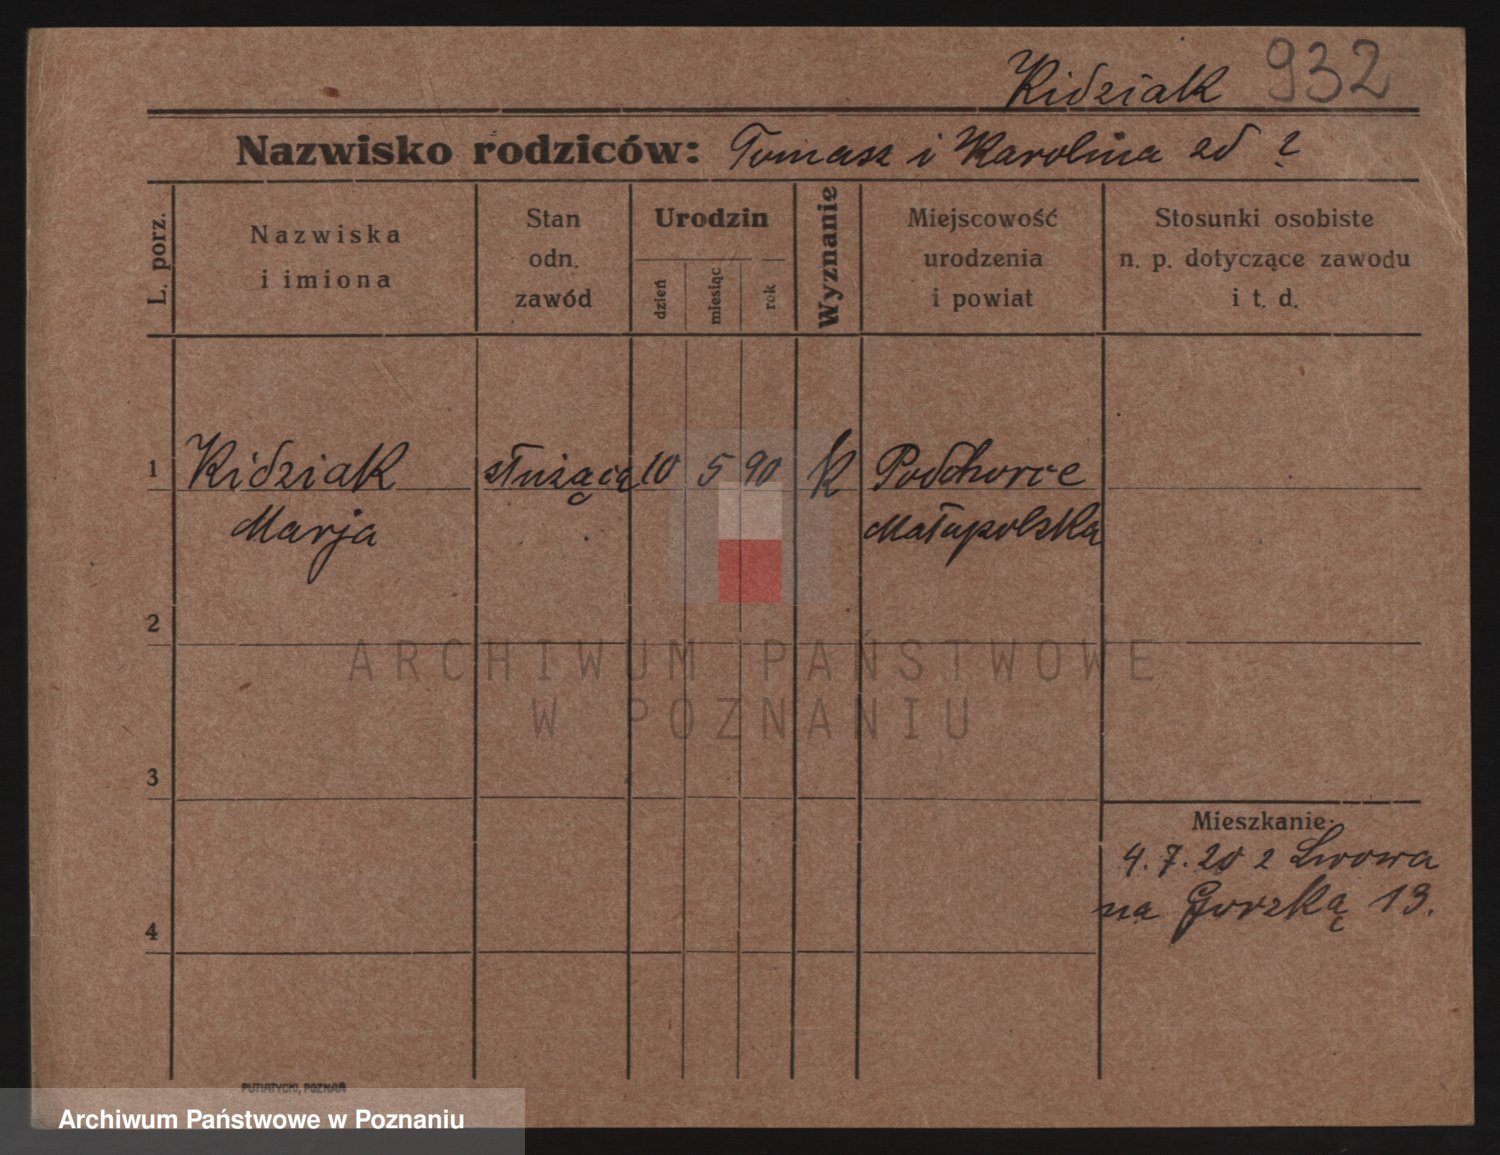 Kidziak 932
Nazwisko rodziców: Tomasz i Karolina zd ?
L. porz.
Nazwiska
i imiona
Stan
odn.
zawód
Urodzin
dzień
miesiąc
rok
Wyznanie
Miejscowość
urodzenia
i powiat
Stosunki osobiste
n. p. dotyczące zawodu
i t. d.
1 Kidziak służąca 10 5 90 k Podhorce
Marja Małopolska
2
3
Mieszkanie:
4. 7. 20 z Lwowa
na Gorzką 13.
4
PUTIATYCKI, POZNAŃ
ARCHIWUM PAŃSTWOWE
W POZNANIU
Archiwum Państwowe w Poznaniu